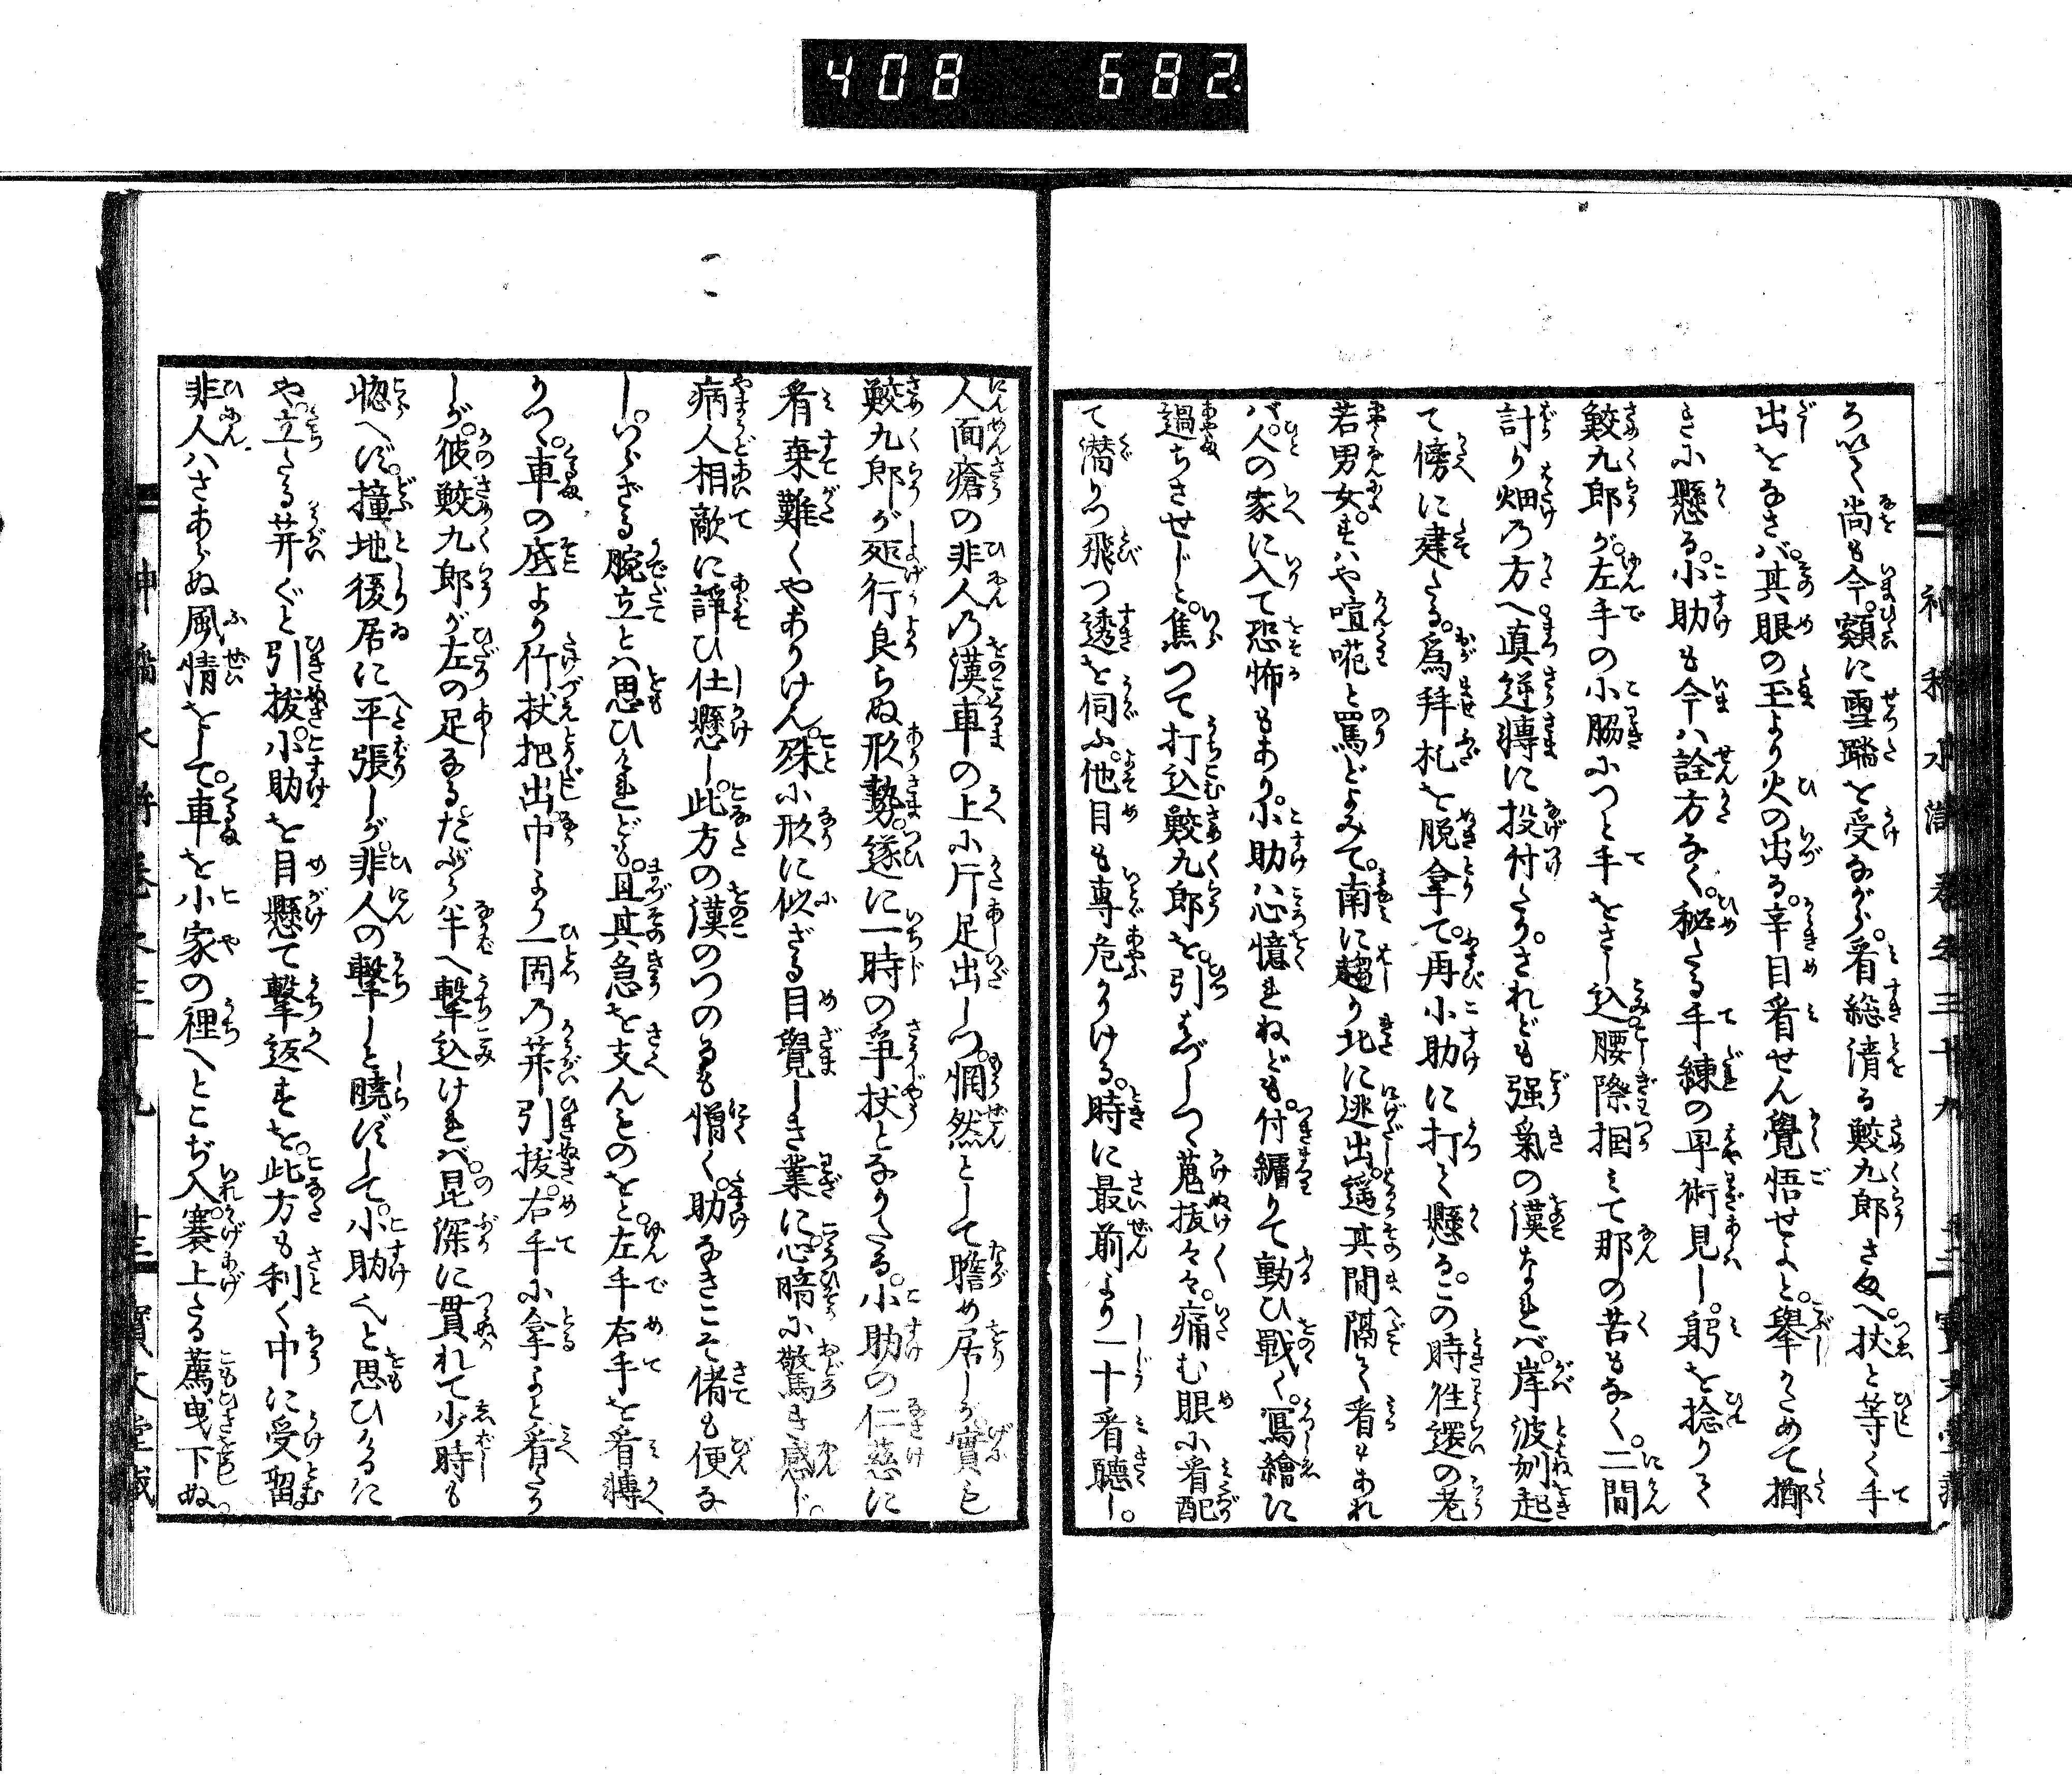 408 682
ろいく尚も今。額に雪踏を受ながら。看總清る鮫九郎さまへ。扙と等く手
出をなさバ。其眼の玉より火の出る。辛目看せん覺悟せよと。擧かためて擲
きに懸る。小助も今ハ詮方なく。秘たる手練の早術見し。躬を捻りて
鮫九郎が。左手の小脇につと手をさし込。腰際掴ミて那の苦もなく。二間
計り畑乃方へ。真逆轉に投付たり。されども强氣の漢なれバ。岸波刎起
て傍に建たる。爲拜札を脱拿て。再小助に打て懸る。この時徃還の老
若男女。すハや喧嘩と罵どよみて。南に趨り北に逃出。遥其間隔て看もあれ
バ。人の家に入て恐怖もあり。小助ハ心憶せねども。付纏りて動ひ戰く。寫繪に
過ちさせじと。焦つて打込鮫九郎を。引はづしつゝ蒐抜々々。痛む眼に看配
て潜りつ飛つ透を伺ふ。他目も專危かりける。時に最前より一十看聽し。
人面瘡の非人乃漢車の上に斤足出しつ。惘然として瞻め居しが。實も
鮫九郎が所行良らぬ形勢。遂に一時の爭扙となりたる。小助の仁慈に
看棄難くやありけん。殊に形に似ざる目覺しき業に。心暗に驚き感じ。
病人相敵に諍ひ仕懸し。此方の漢のつのるも憎く。助なきこそ偖も便な
し。いらざる腕立とハ思ひけれども。且其急を支んものをと。左手右手を看轉
りつゝ。車の底より竹扙把出。中より一固乃笄引拔。右手に拿よと看たり
しが。彼鮫九郎が左の足なる。だぶら半へ撃込けれバ。昆深に貫れて少時も
惚へず。撞地後居に平張しが。非人の撃しと曉ずして。小助也と思ひけるに
や。立たる笄ぐと引拔。小助を目懸て撃返すを。此方も利く中に受留。
非人ハさあらぬ風情をして。車を小家の裡へとこぢ入。褰上たる薦曳下ぬ。